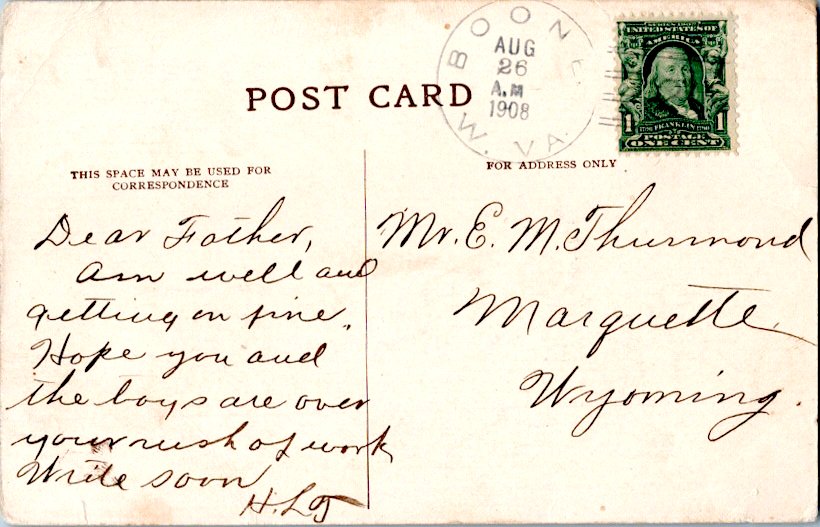 BOONE
AUG
26
A.M
1908
W. VA.
SERIES 1902
UNITED STATES OF
AMERICA
1 1
1706 FRANKLIN 1790
POSTAGE
ONE CENT
POST CARD
THIS SPACE MAY BE USED FOR
CORRESPONDENCE
FOR ADDRESS ONLY
Dear Father,
Am well and
getting on fine.
Hope you and
the boys are over
your rush of work
Write soon
H.L.T
Mr. E. M. Thurmond
Marquette,
Wyoming.